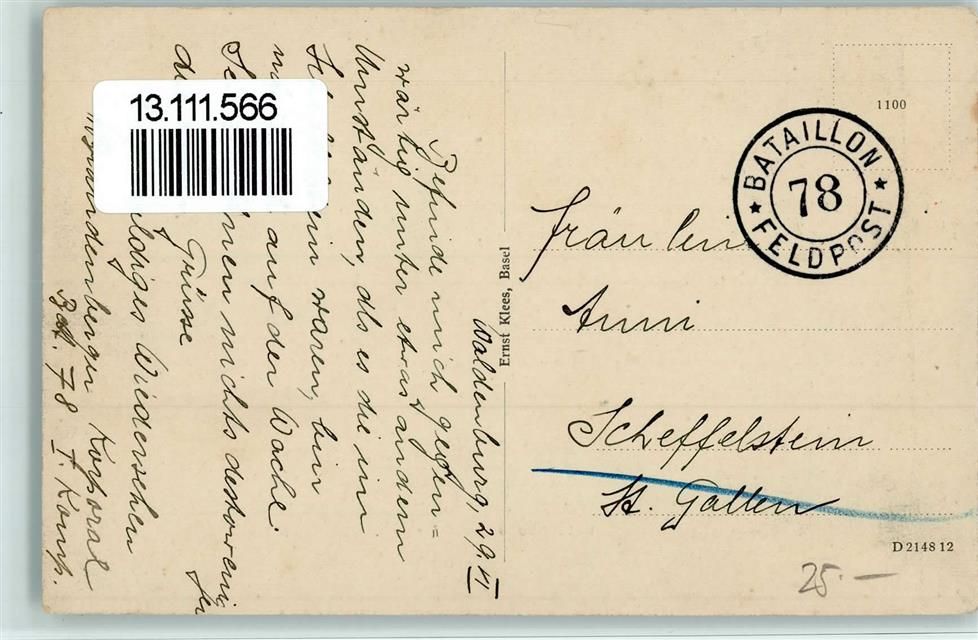 13.111.566
Waldenburg, 29. VI
Befinde mich gegen-
wärtig unter etwas andern
Umständen, als es die im
waren, bin
auf der Wache.
nichts destoweni
Grüsse
Wiedersehen
Korporal
Bat. 78 I. Komp.
Ernst Klees, Basel
1100
BATAILLON
78
FELDPOST
Fräulein
Anni
Scheffelstein
St. Gallen
D 2148 12
25.—